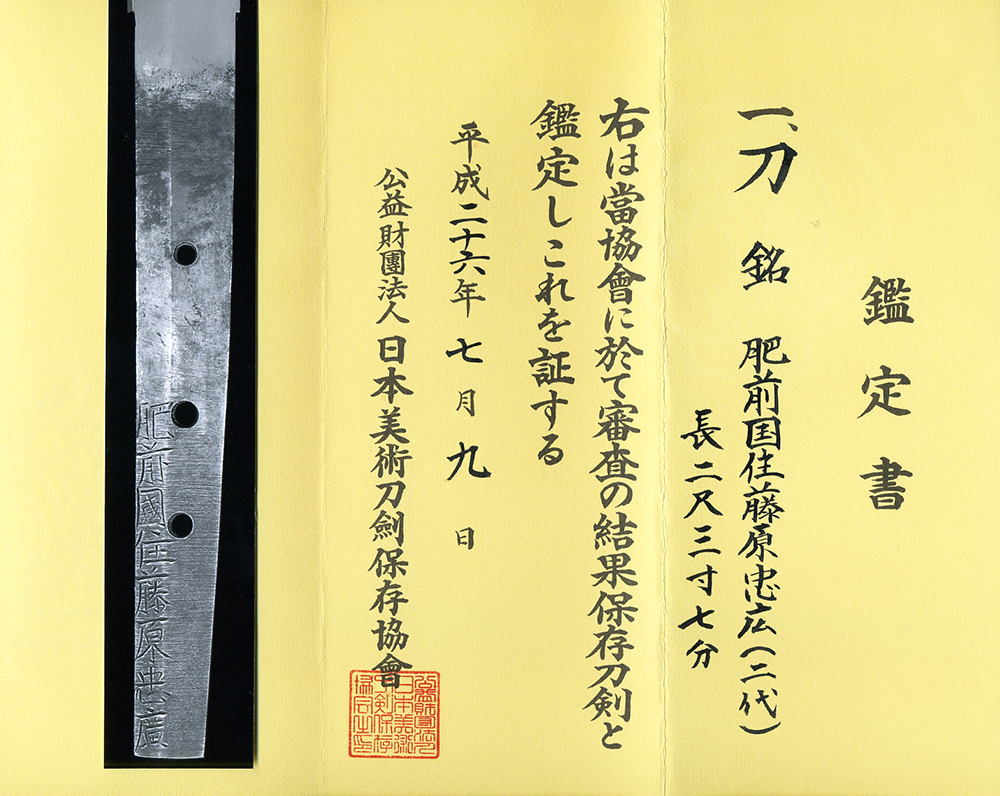 鑑定書
一、刀 銘 肥前国住藤原忠広(二代)
長二尺三寸七分
右は當協會に於て審査の結果保存刀剣と
鑑定しこれを証する
平成二十六年七月九日
公益財團法人日本美術刀劍保存協會
肥前國住藤原忠廣